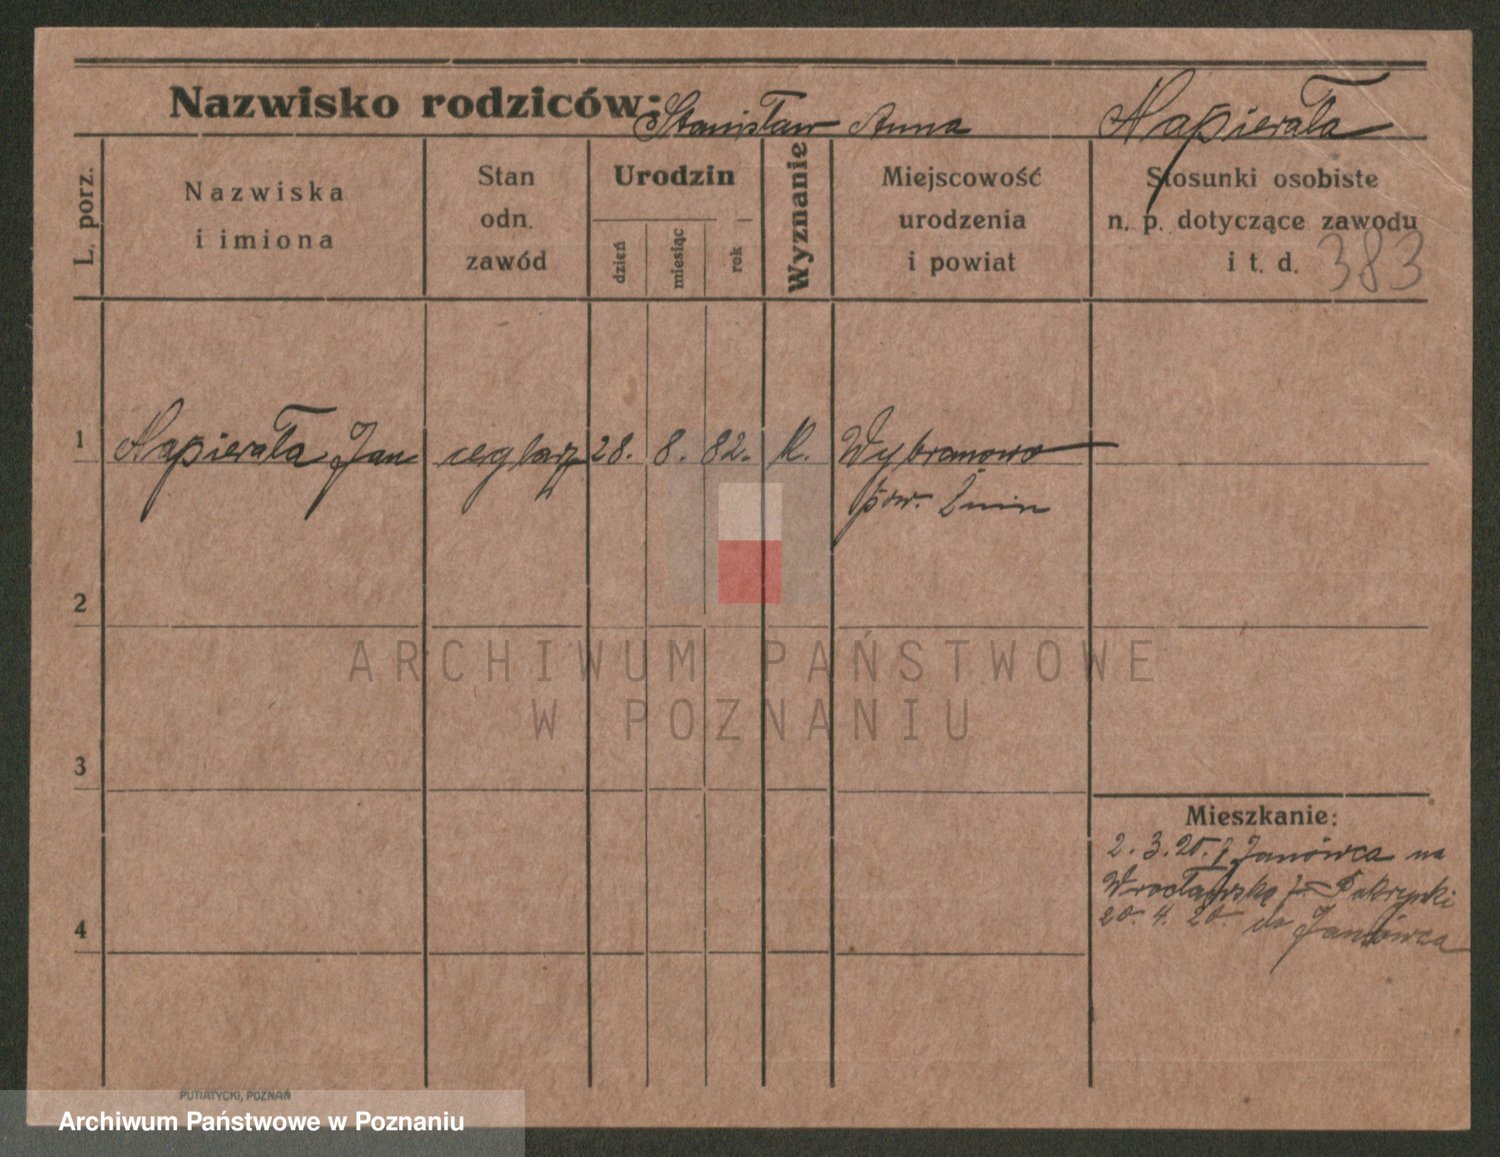 Nazwisko rodziców: Stanisław Anna Napierała
L. porz.
Nazwiska
i imiona
Stan
odn.
zawód
Urodzin
dzień
miesiąc
rok
Wyznanie
Miejscowość
urodzenia
i powiat
Stosunki osobiste
n. p. dotyczące zawodu
i t. d.
383
1 Napierała Jan ceglarz 28. 8. 82. k. Wybranowo
pow. Żnin
2
ARCHIWUM PAŃSTWOWE
W POZNANIU
3
Mieszkanie:
2. 3. 20. z Janówca na
Wrocławską
4
20. 4. 20. do Janówca
PUTIATYCKI, POZNAŃ
Archiwum Państwowe w Poznaniu